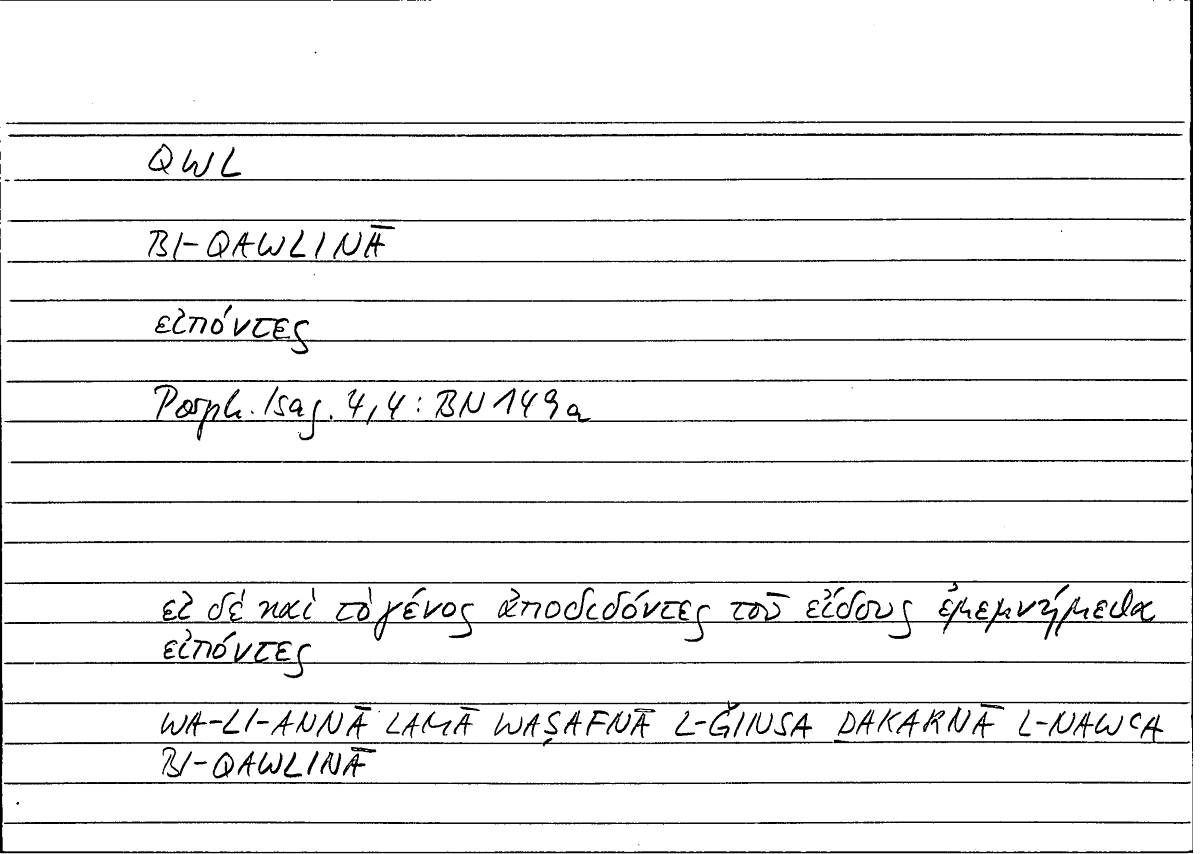 QWL
BI-QAWLINĀ
εἰπόντες
Porph. Isag. 4,4: BN 149a
εἰ δὲ καὶ τὸ γένος ἀποδιδόντες τοῦ εἴδους ἐμεμνήμεθα
εἰπόντες
WA-LI-ANNĀ LAMĀ WAṢAFNĀ L-ǦINSA ḎAKARNĀ L-NAWʿA
BI-QAWLINĀ